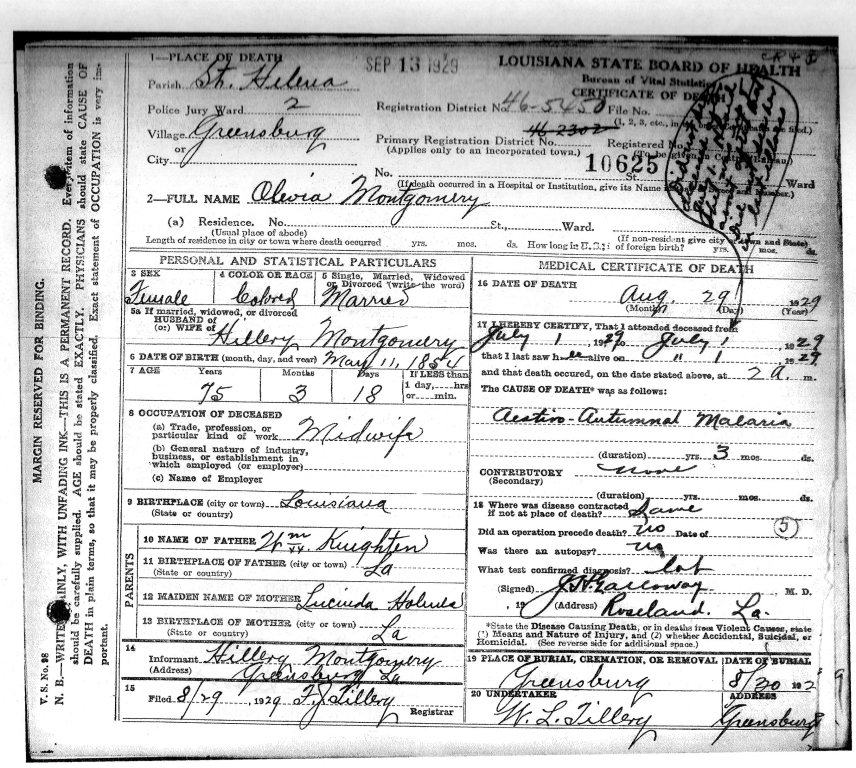 SEP 13 1929
LOUISIANA STATE BOARD OF HEALTH
Bureau of Vital Statistics
CERTIFICATE OF DEATH
1—PLACE OF DEATH
Parish St. Helena
Police Jury Ward 2
Village Greensburg
or
City
Registration District No. 46-5450 File No.
46-2302
(1, 2, 3, etc., in
Primary Registration District No. Registered No.
(Applies only to an incorporated town.)
10625
No. St. Ward
(If death occurred in a Hospital or Institution, give its Name
2—FULL NAME Olevia Montgomery
(a) Residence. No. St., Ward.
(Usual place of abode) (If non-resident give city or town and State)
Length of residence in city or town where death occurred yrs. mos. ds. How long in U.S.: of foreign birth? yrs. mos. ds.
PERSONAL AND STATISTICAL PARTICULARS
3 SEX Female
4 COLOR OR RACE Colored
5 Single, Married, Widowed or Divorced (write the word) Married
5a If married, widowed, or divorced
HUSBAND of
(or) WIFE of Hillery Montgomery
6 DATE OF BIRTH (month, day, and year) May 11, 1854
7 AGE Years Months Days If LESS than
75 3 18 1 day, hrs
or min.
8 OCCUPATION OF DECEASED
(a) Trade, profession, or
particular kind of work Midwife
(b) General nature of industry,
business, or establishment in
which employed (or employer)
(c) Name of Employer
9 BIRTHPLACE (city or town) Louisiana
(State or country)
PARENTS
10 NAME OF FATHER Wm Knighten
11 BIRTHPLACE OF FATHER (city or town) La
(State or country)
12 MAIDEN NAME OF MOTHER Lucinda
13 BIRTHPLACE OF MOTHER (city or town) La
(State or country)
14
Informant Hillery Montgomery
(Address) Greensburg La
15
Filed 8/29, 1929 F. J. Tillery
Registrar
MEDICAL CERTIFICATE OF DEATH
16 DATE OF DEATH
Aug. 29 1929
(Month) (Day) (Year)
17 I HEREBY CERTIFY, That I attended deceased from
July 1, 1929 to July 1 1929
that I last saw her alive on " 1, 1929
and that death occurred, on the date stated above, at 2 a. m.
The CAUSE OF DEATH* was as follows:
Aestivo-Autumnal Malaria
(duration) yrs. 3 mos. ds.
CONTRIBUTORY none
(Secondary)
(duration) yrs. mos. ds.
18 Where was disease contracted
if not at place of death? Same
Did an operation precede death? no Date of
5
Was there an autopsy? no
What test confirmed diagnosis?
(Signed) Galloway M. D.
, 19 (Address) Roseland, La.
*State the Disease Causing Death, or in deaths from Violent Causes, state
(1) Means and Nature of Injury, and (2) whether Accidental, Suicidal, or
Homicidal. (See reverse side for additional space.)
19 PLACE OF BURIAL, CREMATION, OR REMOVAL DATE OF BURIAL
Greensburg 8/30 192
20 UNDERTAKER ADDRESS
W. L. Tillery Greensburg
V. S. No. 98
MARGIN RESERVED FOR BINDING.
N. B.—WRITE PLAINLY, WITH UNFADING INK—THIS IS A PERMANENT RECORD. Every item of information
should be carefully supplied. AGE should be stated EXACTLY. PHYSICIANS should state CAUSE OF
DEATH in plain terms, so that it may be properly classified. Exact statement of OCCUPATION is very im-
portant.